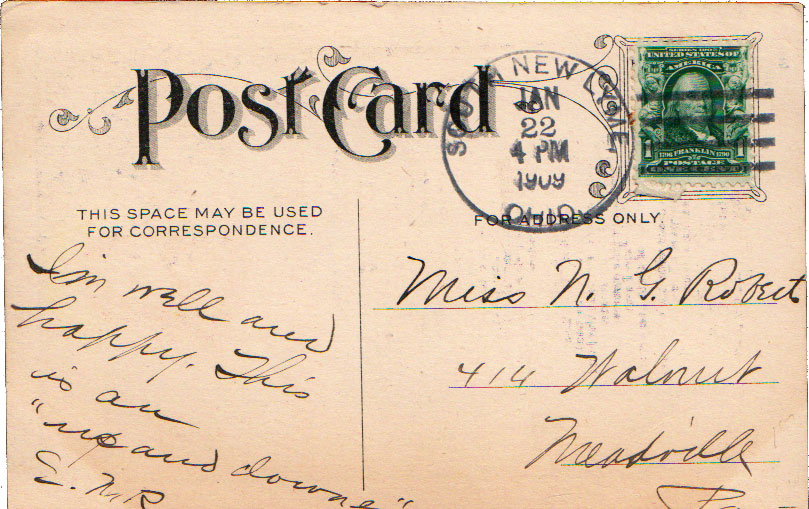 Post Card
SOUTH NEW LYME
JAN
22
4 PM
1909
OHIO
SERIES 1902
UNITED STATES OF
AMERICA
1 1790 FRANKLIN 1790 1
POSTAGE
ONE CENT
THIS SPACE MAY BE USED
FOR CORRESPONDENCE.
FOR ADDRESS ONLY.
I'm well and
happy. This
is an
"up and downe"
E. N. R
Miss N. G. Robert
414 Walnut
Meadville
Pa